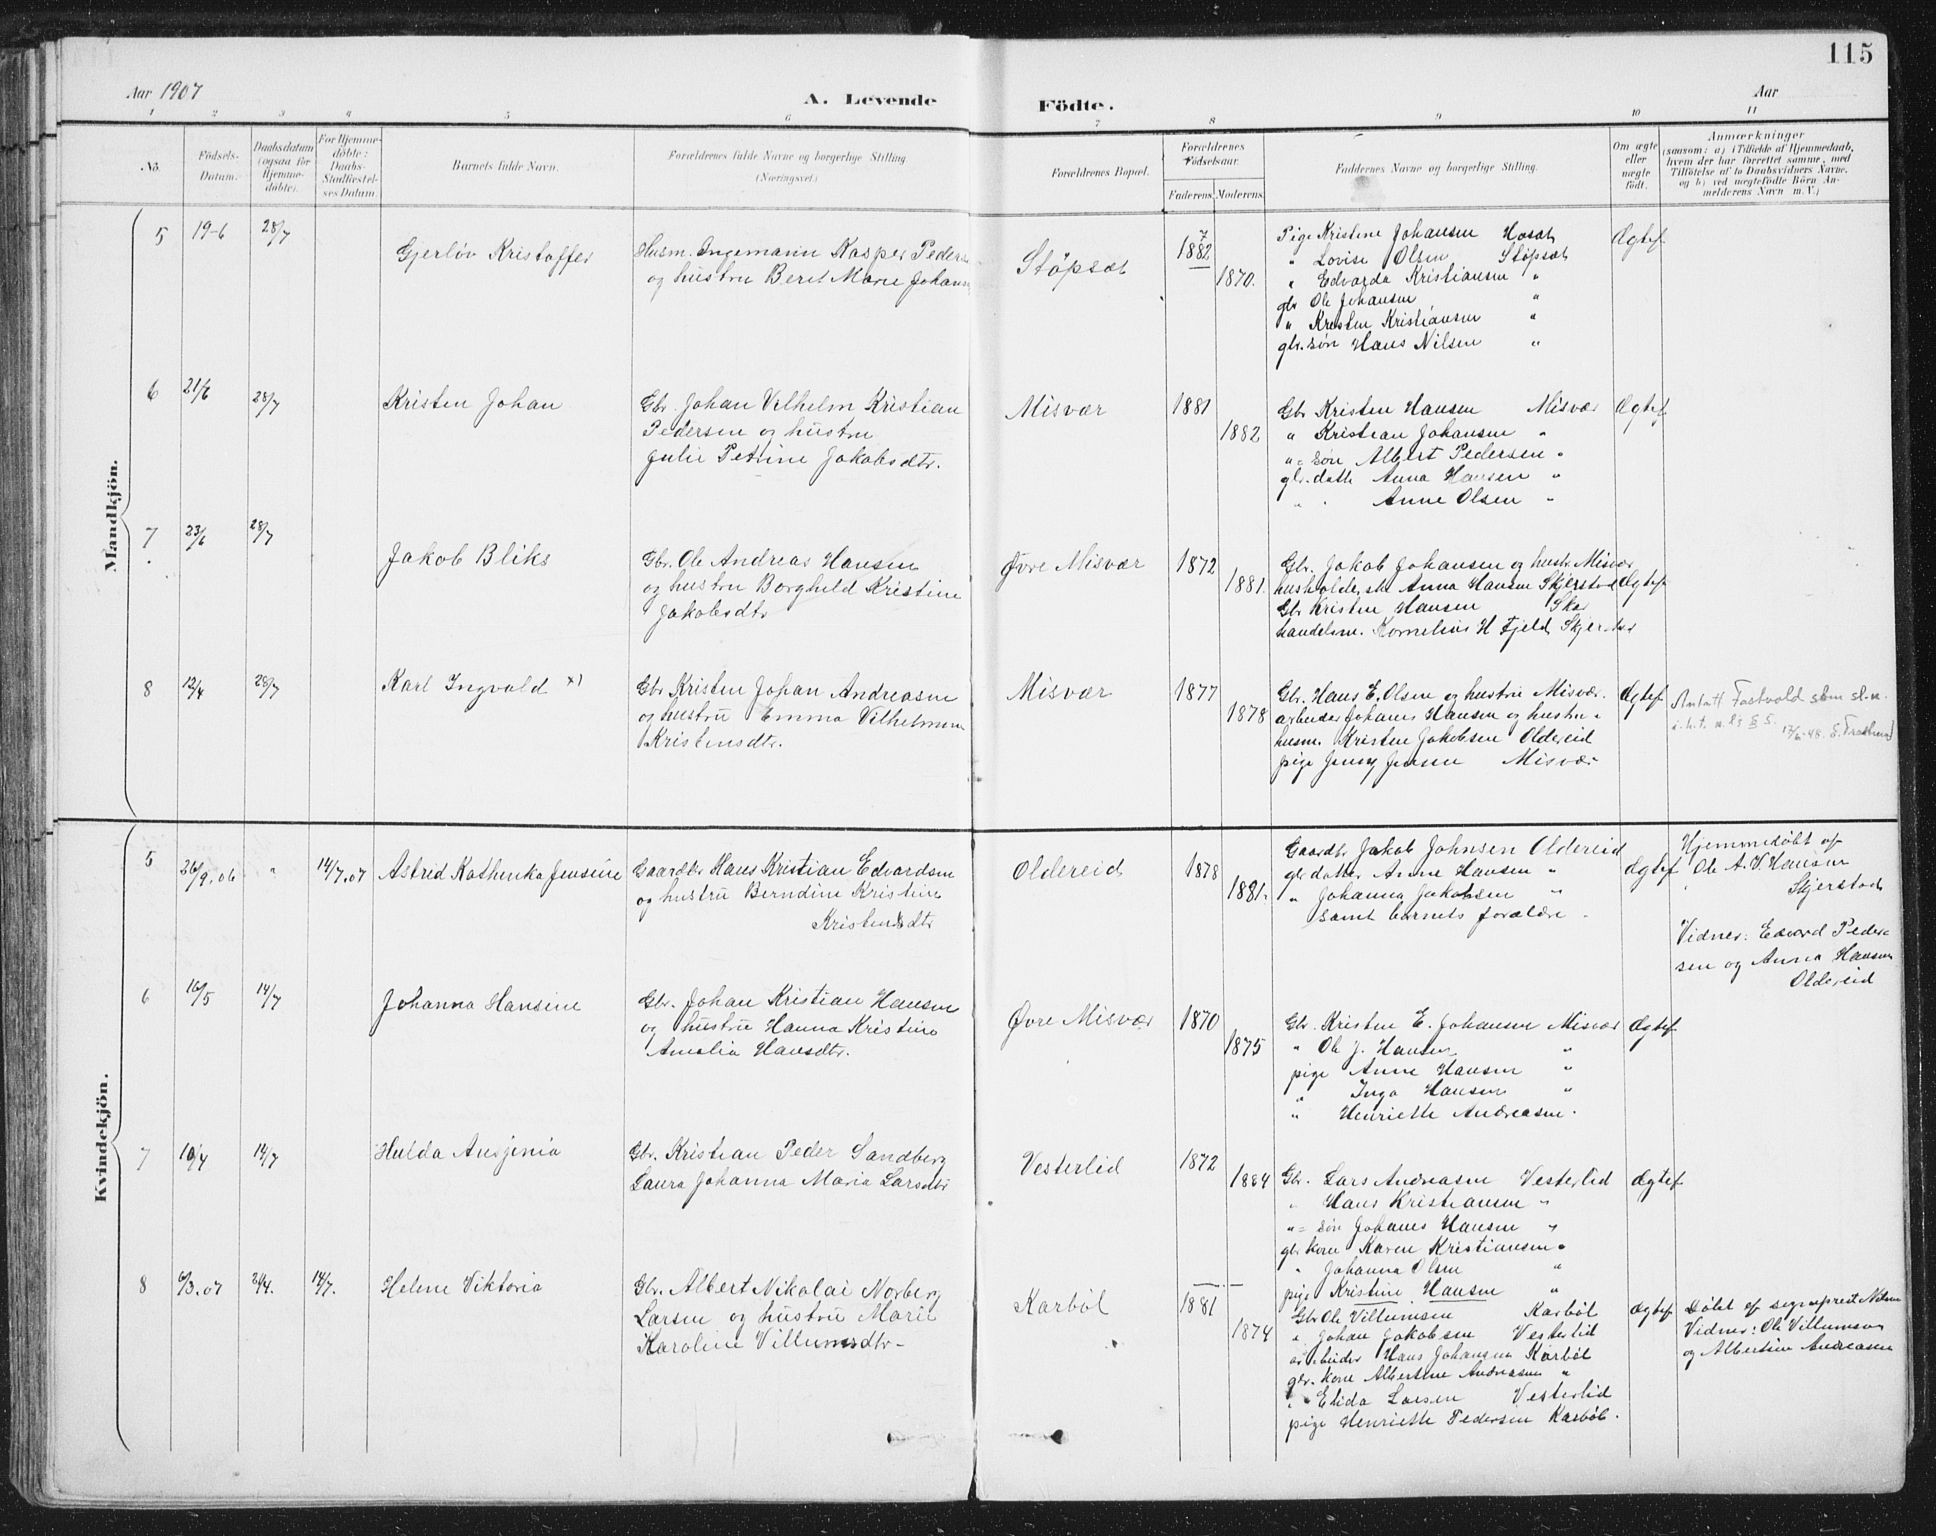 115
Aar 1907
A. Levende Födte.
Aar
1 2 3 4 5 6 7 8 9 10 11
No.
Födsels-Datum.
Daabsdatum (ogsaa for Hjemme-döbte).
For Hjemme-döbte: Daabs-Stadfæstel-ses Datum.
Barnets fulde Navn.
Forældrenes fulde Navne og borgerlige Stilling.
(Næringsvei.)
Forældrenes Bopæl.
Forældrenes Födselsaar.
Faderens. Moderens.
Faddernes Navne og borgerlige Stilling.
Om ægte eller uægte født.
Anmærkninger
(saasom: a) i Tilfælde af Hjemmedaab,
hvem der har forrettet samme, med
Tilföielse af to Daabsvidners Navne,
og b) ved uægtefödte Börn An-
melderens Navn m. V.)
Mandkjön.
5 19-6 28/7
Gjerløv Kristoffer
Husm. Ingemann Kasper Peders
og hustru Beret Marie Johans
Støpsæt
7
1882
1870.
Pige Kristine Johansen Hosæt
" Lovise Olsen Støpsæt
" Edvarda Kristiansen "
gbr Ole Johansen "
" Kristen Kristiansen "
gbr. søn Hans Nilsen "
Ægtef
6 21/6 28/7
Kristen Johan
Gbr. Johan Vilhelm Kristian
Pedersen og hustru
Julie Petrine Jakobsdtr.
Misvær
1881
1882
Gbr Kristen Hansen Misvær
" Kristian Johansen "
" = søn Albert Pedersen "
gbr. datte Anna Hansen "
" . Anne Olsen "
Ægtef
7 23/6 28/7
Jakob Bliks
Gbr. Ole Andreas Hansen
og hustru Borghild Kristine
Jakobsdtr
Øvre Misvær
1872
1881.
Gbr. Jakob Johansen og hustr. Misvær
husholderske Anna Hansen Skjerstad
Gbr Kristen Hansen Skar
handelsm. Kornelius H Fjeld, Skjerstad
Ægtef
8 12/4 28/7
Karl Ingvald x)
Gbr Kristen Johan Andreasen
og hustru Emma Vilhelmine
Kristensdtr.
Misvær
1877
1878
Gbr. Hans E. Olsen og hustru Misvær.
arbeider Johanes Hansen og hustru "
husm. Kristen Jakobsen Oldereid
pige Jenny Jensen Misvær
Ægtef
Antatt Fastvold som sl.n.
i. h. t. n. ls § 5. 17/6-48.
Kvindekjön.
5 26/9.06 " 14/7.07
Astrid Kathenka Jensine
Gaardbr Hans Kristian Edvardsen
og hustru Berndine Kristine
Kristensdtr
Oldereid
1878
1881.
Gaardbr Jakob Johnsen Oldereid
gbr datter Anne Hansen "
" Johanna Jakobsen "
samt barnets forældre -
Ægtef
Hjemmedøbt af
Ole A. V. Hansen
Skjerstad
Vidner: Edvard Peder-
sen og Anna Hansen
Oldereid
6 16/5 14/7
Johanna Hansine
Gbr. Johan Kristian Hansen
og hustru Hanna Kristine
Amalia Hansdtr.
Øvre Misvær
1870
1875
Gbr. Kristen E. Johansen Misvær
" Ole J. Hansen "
pige Anne Hansen "
" Inga Hansen "
" Henriette Andreasen.
Ægtef
7 10/4 14/7
Hulda Ansjinia
Gbr. Kristian Peder Sandberg
Laura Johanna Maria Larsdtr
Vesterlid
1872
1884
Gbr. Lars Andreasen Vesterlid
" Hans Kristiansen "
" = søn Johanes Hansen "
gbr kone Karen Kristiansen "
" Johanna Olsen "
pige Kristine Hansen "
Ægtef
8 6/3.07 21/4. 14/7.
Helene Viktoria
Gbr. Albert Nikolai Norberg
Larsen og hustru Marie
Karoline Villumsdtr-
Karbøl
1881
1874
Gbr Ole Villumsen Karbøl
" Johan Jakobsen Vesterlid
arbeider Hans Johansen Karbøl
gbr. kone Albertine Andreasen "
" Elida Larsen Vesterlid
pige Henriette Pedersen Karbøl.
Ægtef
Døbt af sogneprest Nilsen
Vidner: Ole Villumsen
og Albertine Andreasen